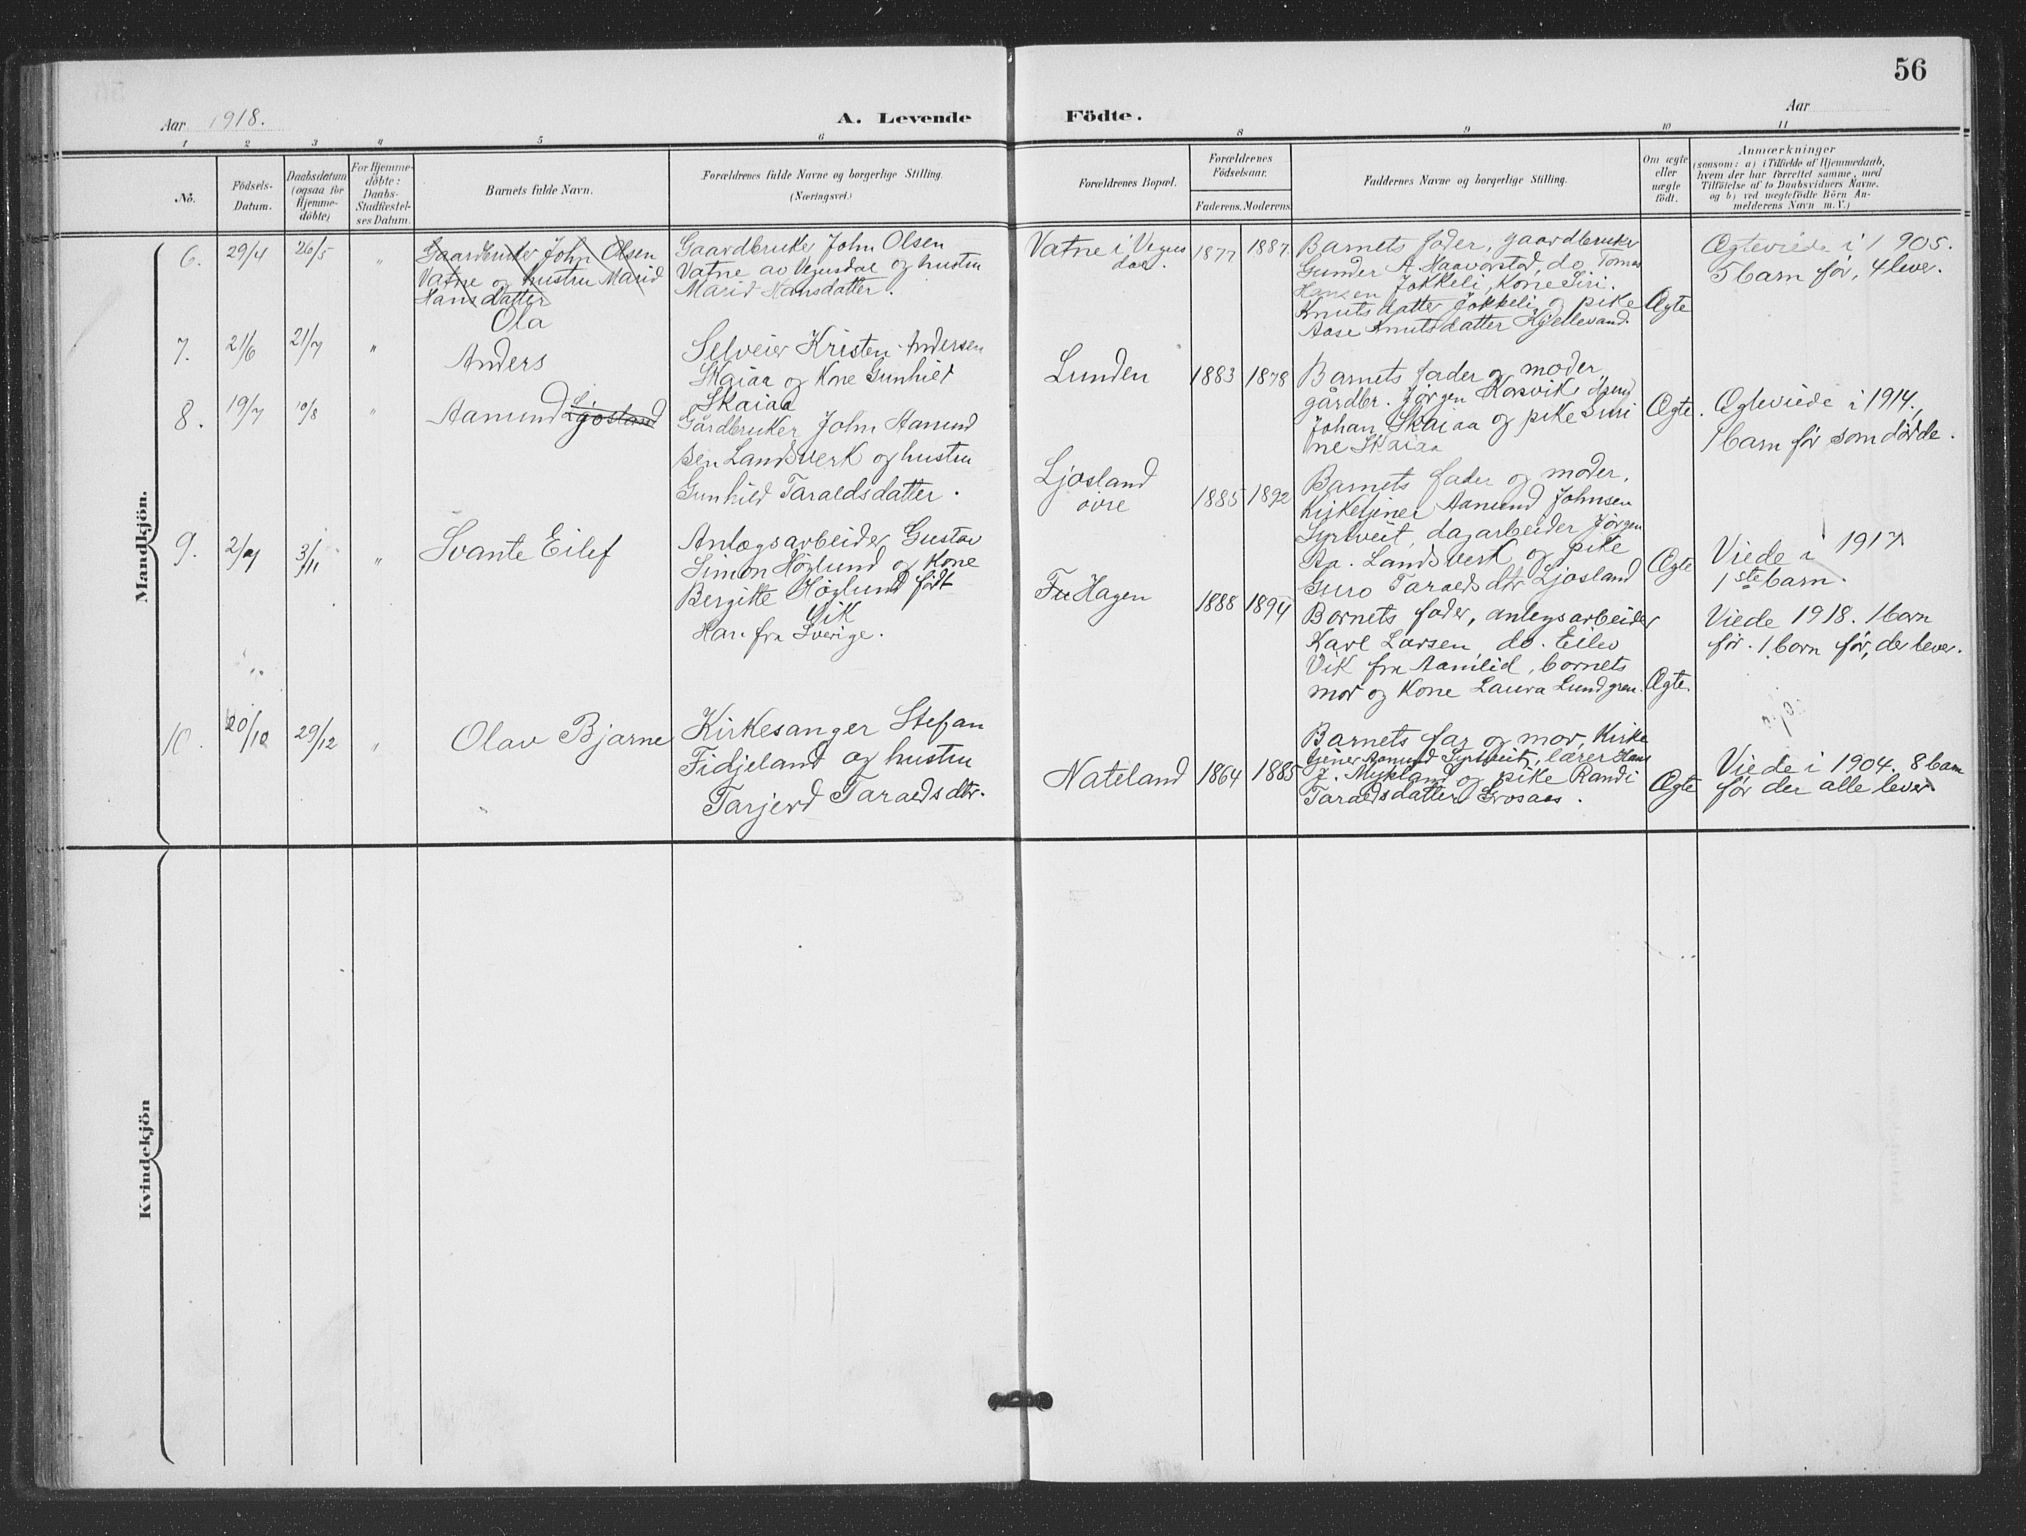 56
Aar 1918.
A. Levende
Födte.
Aar
1
2
3
4
5
6
8
9
10
11
No.
Födsels-
Datum.
Daabsdatum
(ogsaa for
Hjemme-
döbte)
For Hjemme-
döbte:
Daabs-
Stadfæstel-
ses Datum.
Barnets fulde Navn.
Forældrenes fulde Navne og borgerlige Stilling.
(Næringsvei.)
Forældrenes Bopæl.
Forældrenes
Födselsaar.
Faderens.
Moderens.
Faddernes Navne og borgerlige Stilling.
Om ægte
eller
uægte
født.
Anmærkninger
(saasom: a) i Tilfælde af Hjemmedaab,
hvem der har forrettet samme, med
Tilføielse af to Daabsvidners Navne,
og b) ved uægtefödte Börn An-
melderens Navn m. V.)
Mandkjön.
6.
29/4
26/5
"
Gaardbruker John Olsen
Vatne og hustru Marid
Hansdatter
Ola
Gaardbruker John Olsen
Vatne av Vegusdal og hustru
Marid Hansdatter.
Vatne i Vegus
dal.
1877
1887
Barnets fader, gaardbruker
Gunder A. Haavorstad, do. Tomas
Hansen Jokkeli, Kone Siri
Knutsdatter Jokkeli og pike
Aase Knutsdatter Kjellevand.
Ægte
Ægteviede i 1905.
5 barn før, 4 lever.
7.
21/6
21/7
"
Anders
Selveier Kristen Andersen
Skaiaa og Kone Gunhild
Skaiaa
Lunden
1883
1878
Barnets fader og moder
gårdbr. Jørgen Korsvik,
Johan Skaiaa og pike Siri
ne Skaiaa
Ægte.
Ægteviede i 1914,
1 barn før som døde.
8.
19/7
10/8
"
Aamund Ljosland
Gårdbruker John Aamund
sen Landsverk og hustru
Gunhild Taraldsdatter.
Ljosland
øvre
1885
1892
Barnets fader og moder,
Kirketjener Aamund Johnsen
Syrtveit, dagarbeider Jørgen
Aa. Landsverk og pike
Guro Taraldsdtr Ljosland
Ægte
Viede i 1917
1ste barn.
9.
2/9
3/11
"
Svante Eilef
Anlægsarbeider Gustav
Simon Höglund og Kone
Bergitte Höglund født
Vik
Han fra Sverige.
Hagen
1888
1894
Barnets fader, anlegsarbeider
Karl Larsen, do. Eilev
Vik fra Aamlid, barnets
mor og Kone Laura Lundgren.
Ægte.
Viede 1918. 1 barn
før. 1 barn før, der lever.
10.
20/10
29/12
"
Olav Bjarne
Kirkesanger Stefan
Fidjeland og hustru
Tarjerd Taraldsdtr.
Nateland
1864
1885
Barnets far og mor, Kirke
tjener Aamund Syrtveit, lærer Hans
J. Mykland og pike Randi
Taraldsdatter Grosaas.
Ægte
Viede i 1904. 8 barn
før der alle lever
Kvindekjön